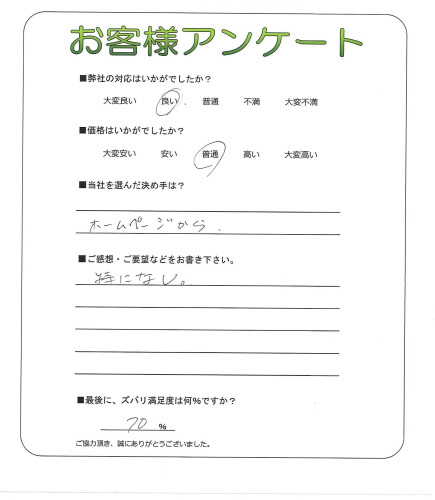 お客様アンケート
■弊社の対応はいかがでしたか？
大変良い 良い、 普通 不満 大変不満
■価格はいかがでしたか？
大変安い 安い 普通 高い 大変高い
■当社を選んだ決め手は？
ホームページから.
■ご感想・ご要望などをお書き下さい。
特になし。
■最後に、ズバリ満足度は何%ですか？
70 %
ご協力頂き、誠にありがとうございました。